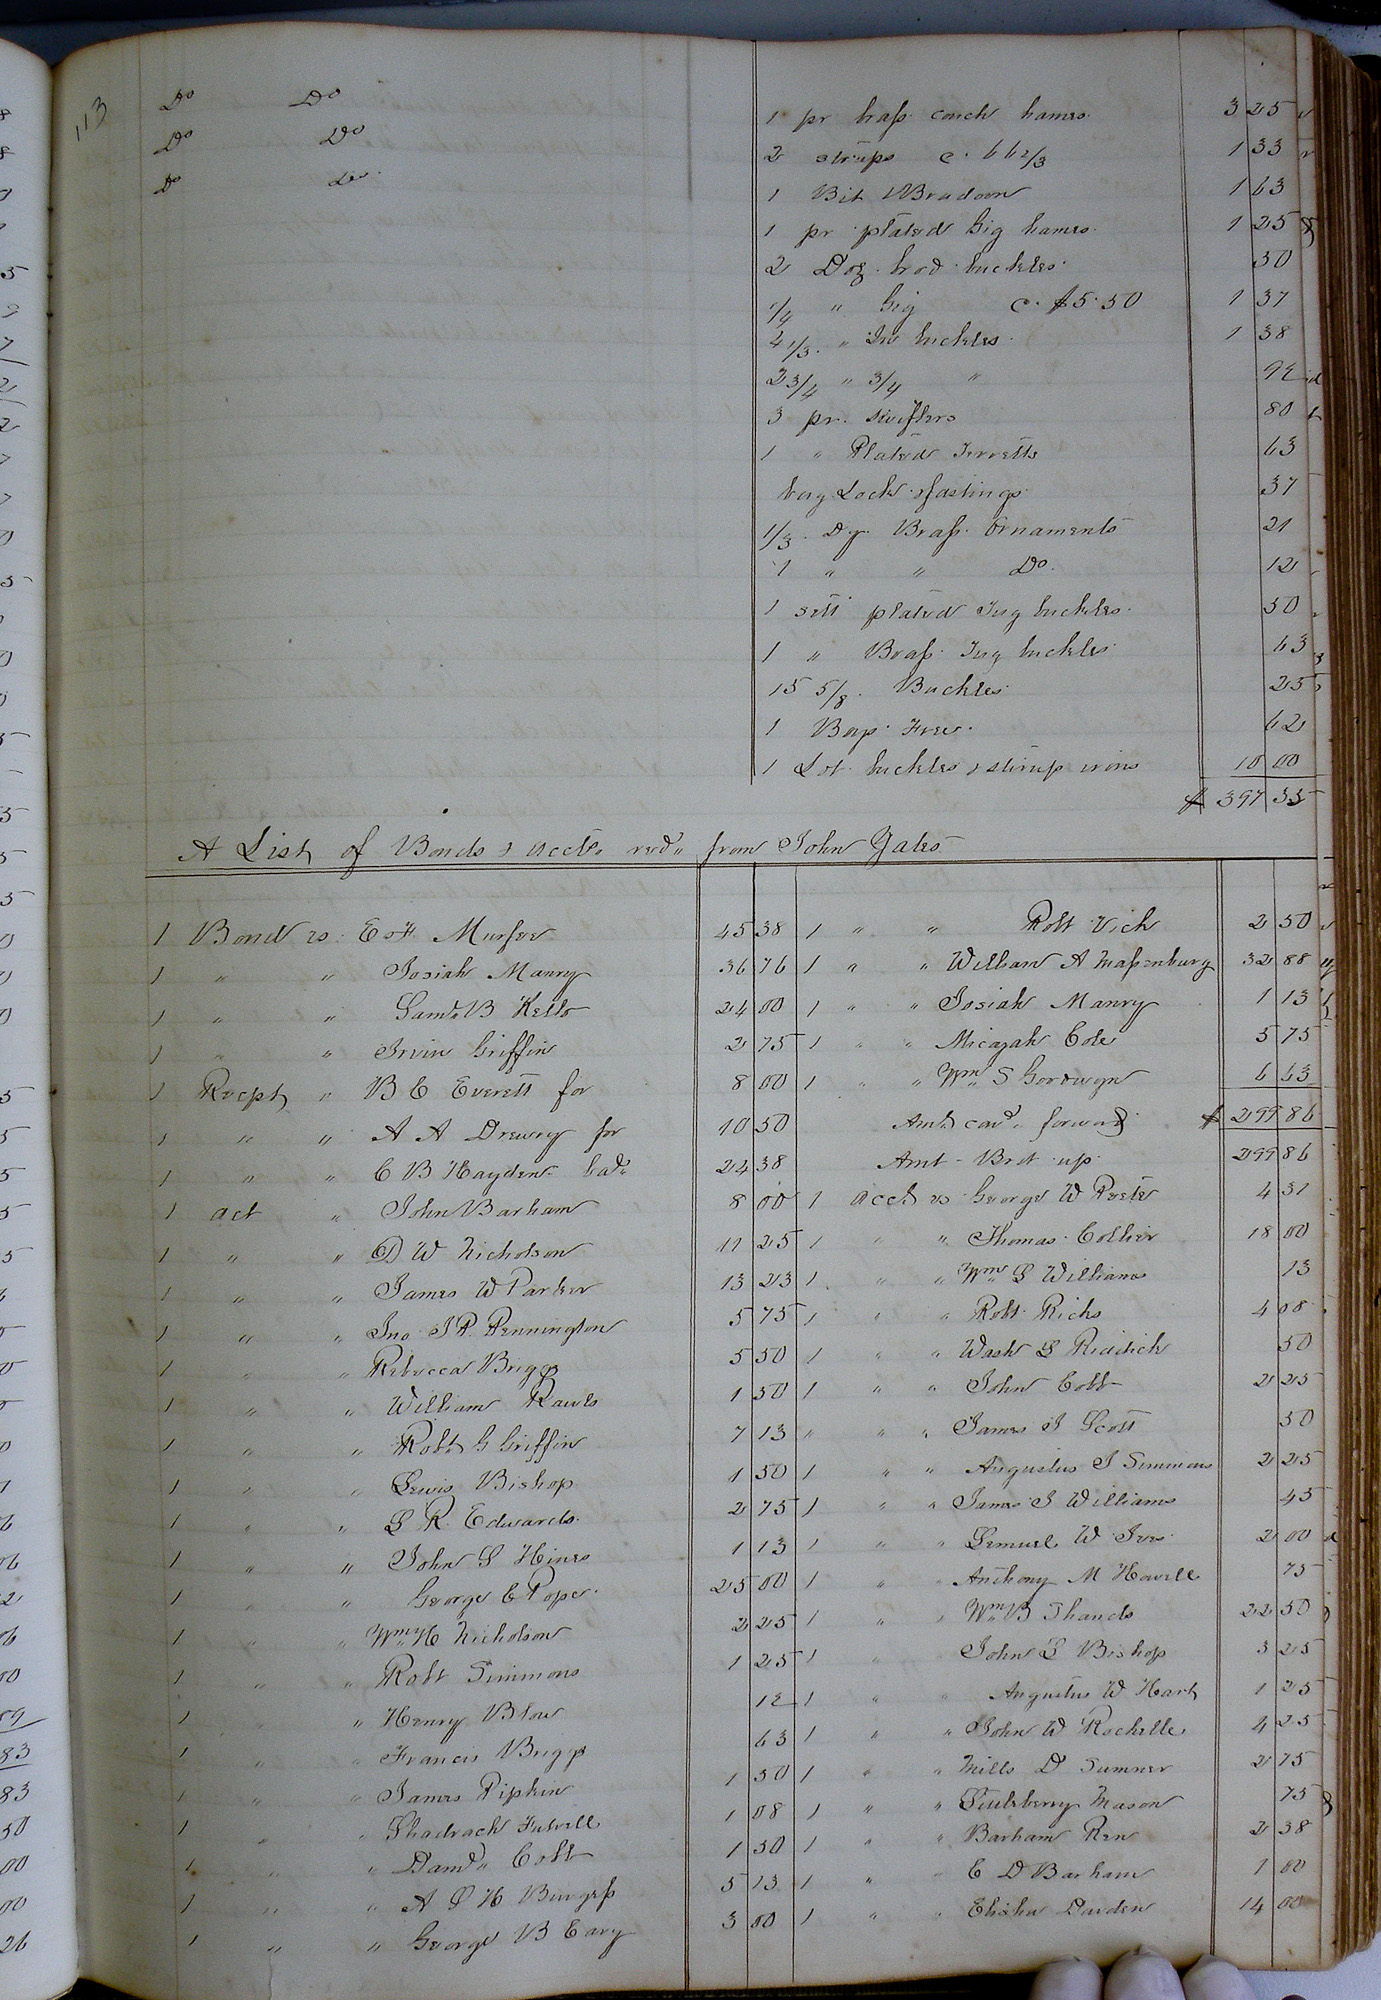 113
Do Do 1 pr brass coach hames 3 25
Do Do 2 straps c. 66 2/3 1 33
Do do. 1 Bit Bradoon 1 63
1 pr plated Gig hames. 1 25
2 Doz. brod buckles. 50
1/4 " Gig c. $5.50 1 37
4 1/3. " In buckles. 1 38
2 3/4 " 3/4 " 92
3 pr. swiflers 80
1 " Plated Terretts 63
bag Lock & fastings 37
1/3. Dz. Brass Ornaments 21
1 " " Do. 12
1 sett plated Tug buckles. 50
1 " Brass Tug buckles 63
15 5/8. Buckles 25
1 Tree. 62
1 Lot buckles & stirup irons 10 00
$ 397 35
A List of Bonds & accts recd. from John Gates
1 Bond vs. E & H Murfee 45 38
1 " " Josiah Manry 36 76
1 " " Saml. B Kello 24 00
1 " " Irvin Griffin 2 75
1 Recpt " B E Everett for 8 00
1 " " A A Drewry for 10 50
1 " " C B Hayden bad. 24 38
1 act " John Barham 8 00
1 " " D W Nicholson 11 25
1 " " James W Parker 13 23
1 " " Jno J P. Pennington 5 75
1 " " Rebecca Briggs 5 50
1 " " William Rawls 1 50
1 " " Robt G Griffin 7 13
1 " " Lewis Bishop 1 50
1 " " L R. Edwards. 2 75
1 " " John S Hines 1 13
1 " " George E Pope. 25 00
1 " " Wm. H Nicholson 2 25
1 " " Robt Simmons 1 25
1 " " Henry Blow 12
1 " " Francis Briggs 63
1 " " James Pipkin 1 50
1 " " Shadrack Futrell 1 08
1 " " Cobb 1 50
1 " " A L H Burgess 5 13
1 " " George B Cary 3 00
1 " " Robt Vick 2 50
1 " " William A Massenburg 32 88
1 " " Josiah Manry 1 13
1 " " Micajah Cole 5 75
1 " " Wm S Gordwyn 6 63
Amt. card. forward $ 299 86
Amt Brot up 299 86
1 acct vs George W Peete 4 31
1 " " Thomas Collier 18 00
1 " " Wm. S Williams 13
1 " " Robt Ricks 4 08
1 " " Wash L Riddick 50
1 " " John Cobb 2 25
" " " James J Scott 50
1 " " Augustus J Simmons 2 25
1 " " James J Williams 45
1 " " Lemuel W Ives 2 00
1 " " Anthony M Howell 75
1 " " Wm. B Shands 22 50
1 " John L Bishop 3 25
1 " " Augustus W Hart 1 25
1 " " John W Rochelle 4 25
1 " " Mills D Sumner 2 75
1 " " Mason 75
1 " " Barham Ren 2 38
1 " " E D Barham 1 00
1 " " Elisha Darden 14 00